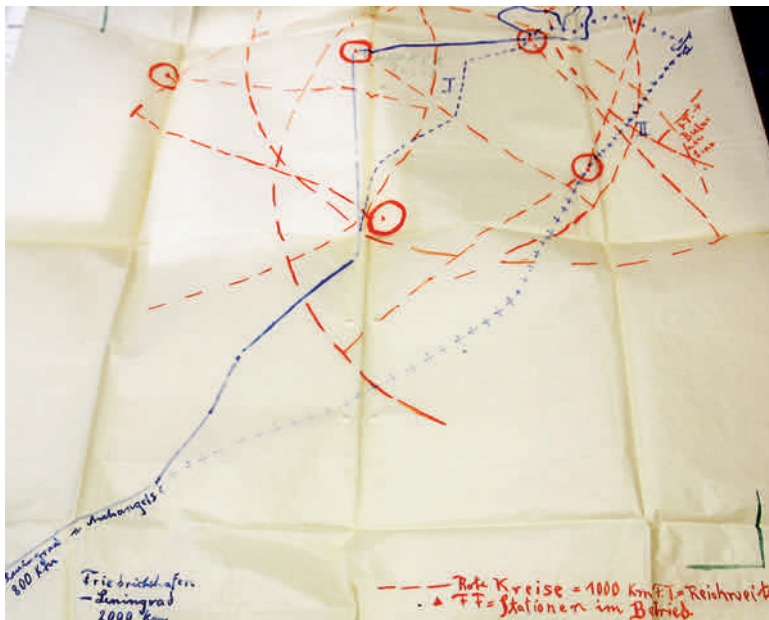 I
Leningrad → Archangelsk
800 Km
Friedrichshafen
– Leningrad
2000 Km
Rote Kreise = 1000 Km F.T.=Reichweite
F.T.=Stationen im Betrieb.